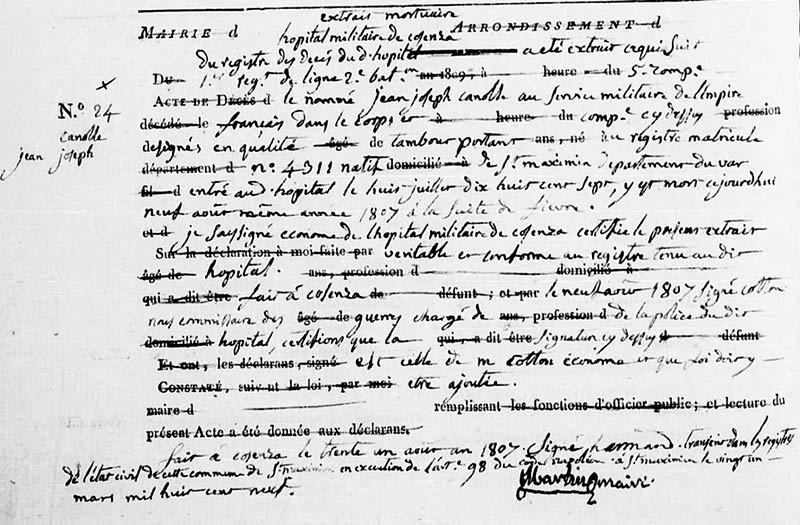 extrait mortuaire
MAIRIE d hopital militaire de cosenza ARRONDISSEMENT d
Du registre des Décés du d. hopital a eté extrait ce qui suit
DU 1.er reg.t de ligne 2.e bat.on an 1809, à heure du 5.e comp.e
ACTE DE DÉCÈS d le nommé jean joseph canolle au service militaire de l'empire
N.o 24
canolle
jean joseph
décédé le français dans le corps et à heure du comp.e cy dessus profession
designés en qualité âgé de tambour portant ans, né au registre matricule
département d n.o 4311 natif domicilié à de S.t maximin departement du var
Et d entré aud. hopital le huit juillet dix huit cent sept, y est mort cejourdhui
neuf août même année 1807 à la suite de fievre.
et d je soussigné econome de l'hopital militaire de cosenza certifie le présent extrait
Sur la déclaration à moi faite par veritable et conforme au registre tenu au dit
âgé de hopital. ans, profession d domicilié à
qui a dit être fait à cosenza de défunt; et par le neuf août 1807 signé cotton
nous commissaire des âgé de guerres chargé de ans, profession d de la police du dit
domicilié à hopital, certifions que la qui a dit être signature cy dessus d défunt
Et ont, les déclarans, signé est celle de m cotton économe et que foi doit y
CONSTATÉ, suivant la loi, par moi etre ajoutée.
maire d remplissant les fonctions d'officier public; et lecture du
présent Acte a été donnée aux déclarans.
fait à cosenza le trente un août an 1807. Signé transcrit dans les registres
de l'état civil de cette commune de S.t maximin en execution de l'art.e 98 du code napoléon à S.t maximin le vingt un
mars mil huit cent neuf. maire.